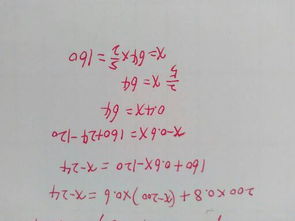 200×0.8+(x-200)×0.6=x-24
160+0.6x-120=x-24
x-0.6x=160+24-120
0.4x=64
2/5 x=64
x=64×5/2=160